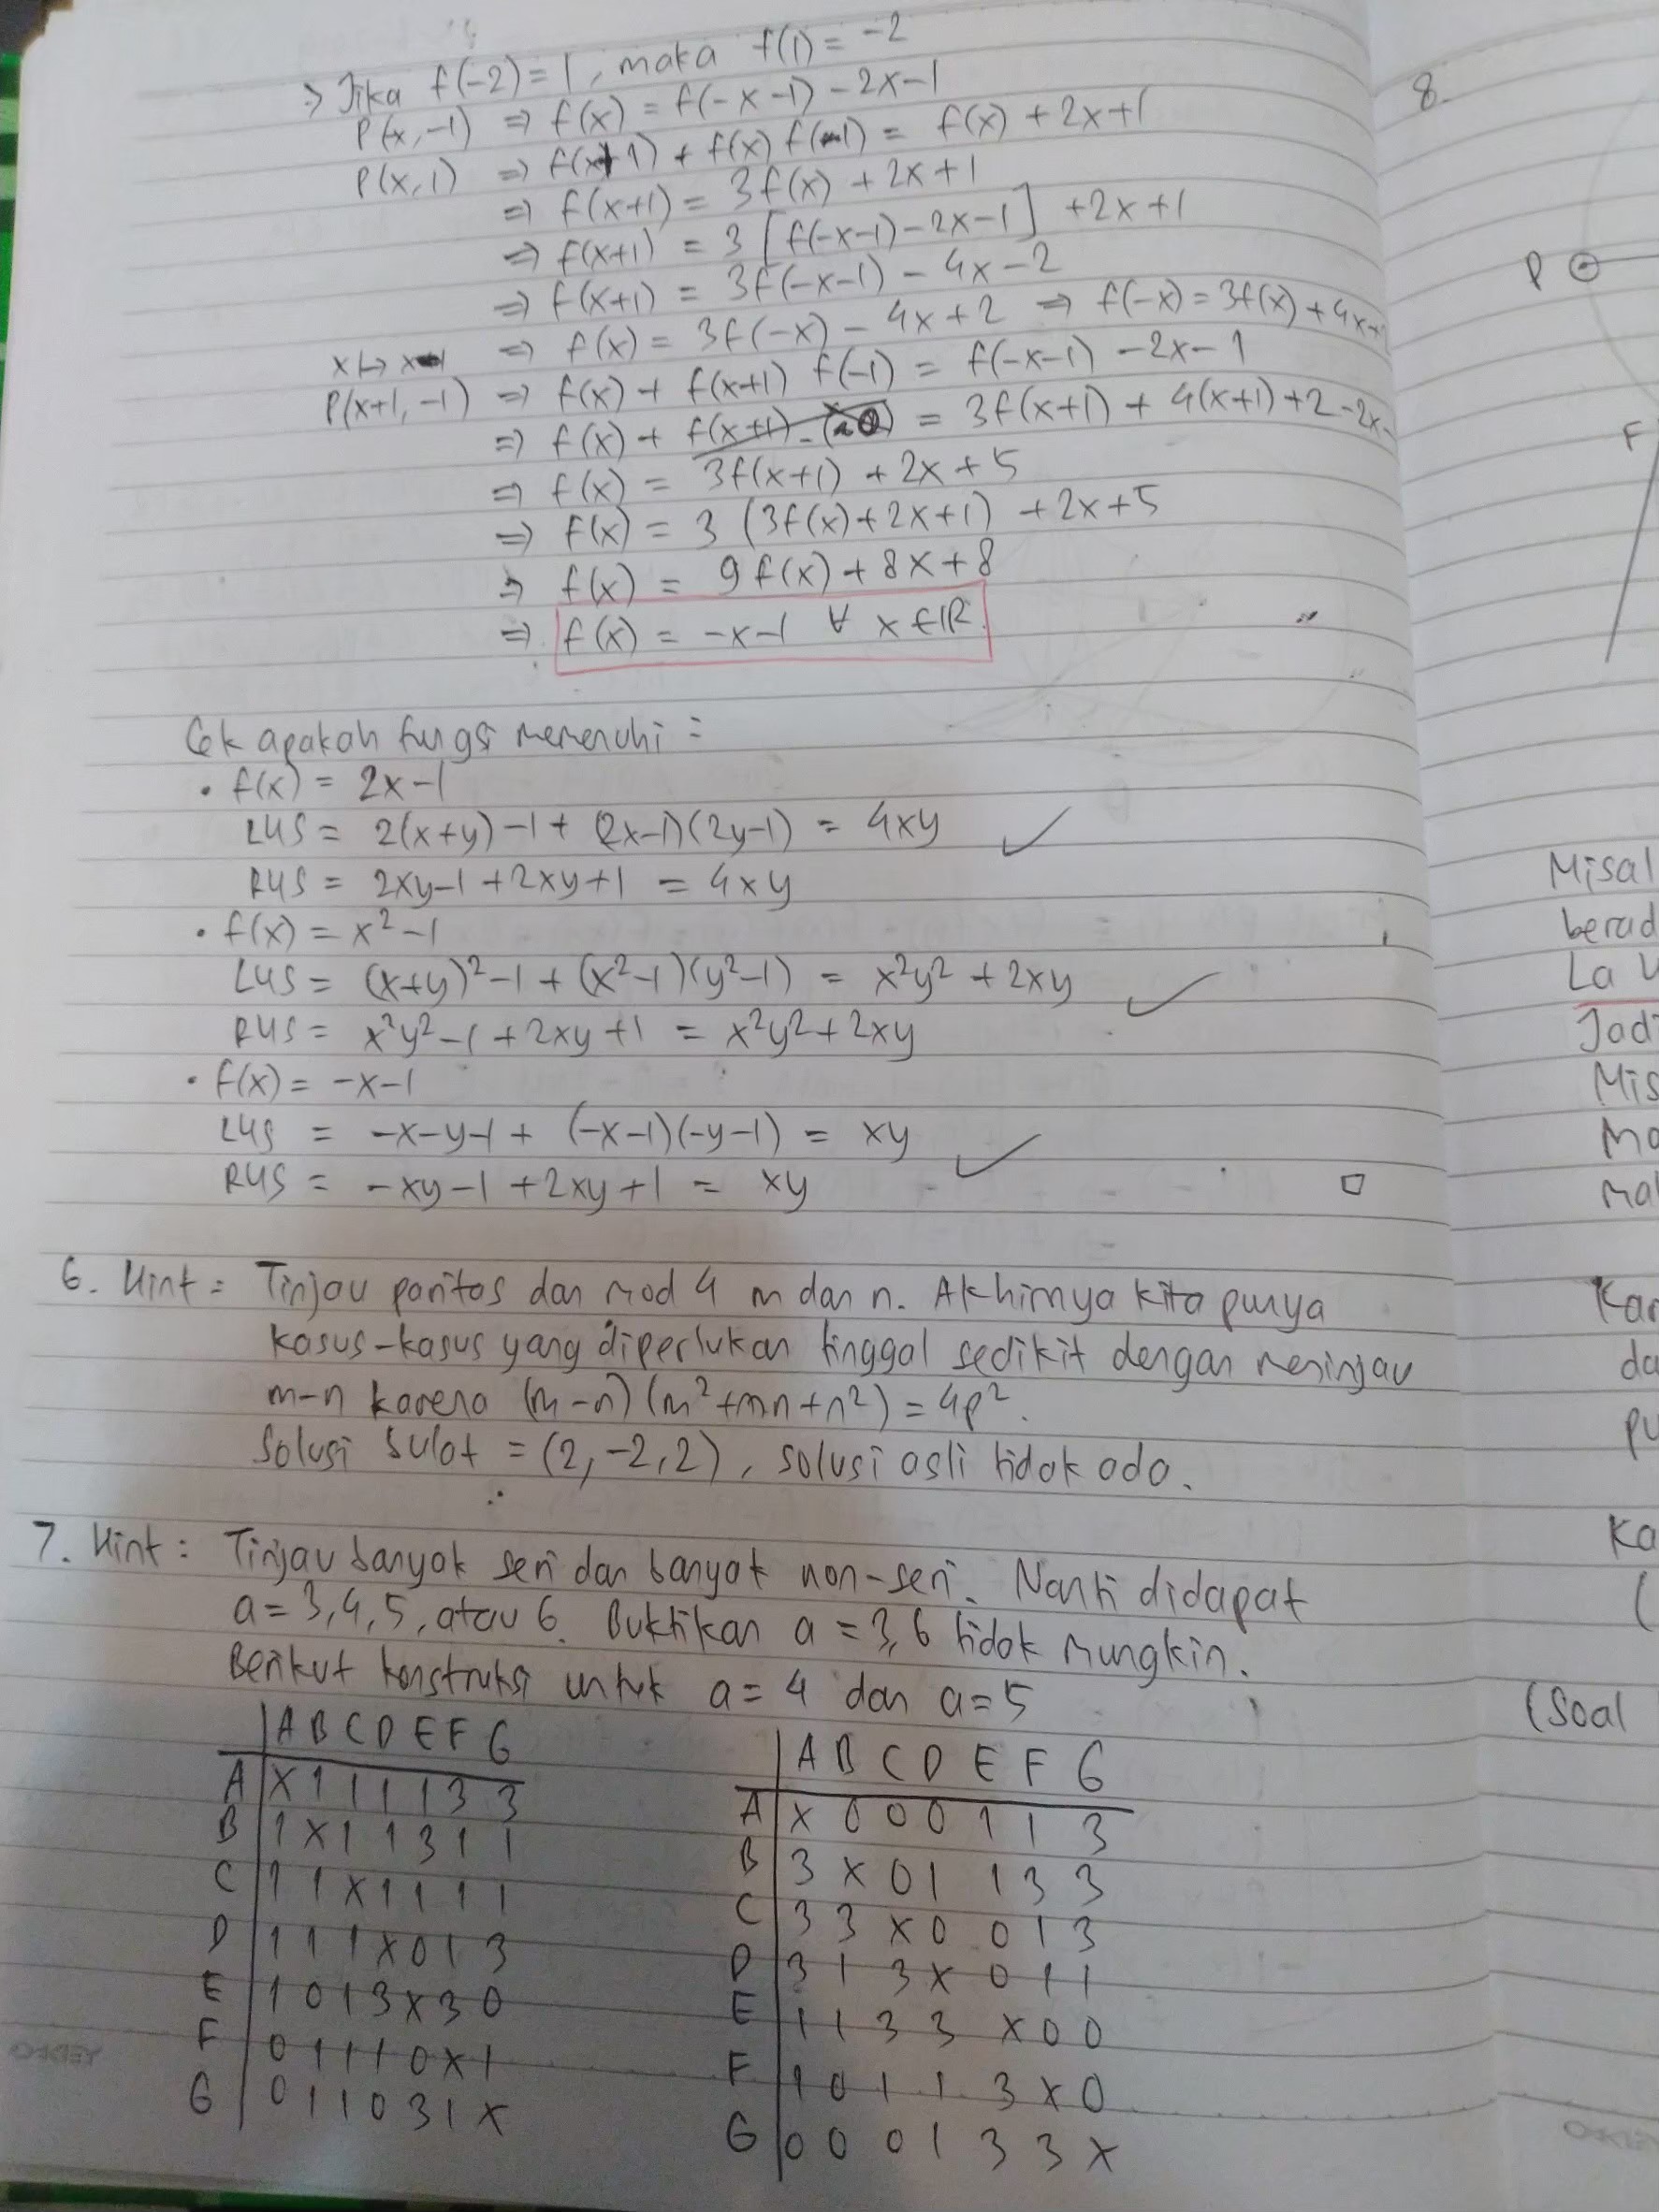 ⇒ Jika f(-2) = 1, maka f(1) = -2
P(x, -1) ⇒ f(x) = f(-x-1) - 2x - 1
P(x, 1) ⇒ f(x+1) + f(x) f(-1) = f(x) + 2x + 1
⇒ f(x+1) = 3f(x) + 2x + 1
⇒ f(x+1) = 3 [f(-x-1) - 2x - 1] + 2x + 1
⇒ f(x+1) = 3f(-x-1) - 4x - 2
x ↦ x-1 ⇒ f(x) = 3f(-x) - 4x + 2 ⇒ f(-x) = 3f(x) + 4x +
P(x+1, -1) ⇒ f(x) + f(x+1) f(-1) = f(-x-1) - 2x - 1
⇒ f(x) + = 3f(x+1) + 4(x+1) + 2 - 2x -
⇒ f(x) = 3f(x+1) + 2x + 5
⇒ f(x) = 3 (3f(x) + 2x + 1) + 2x + 5
⇒ f(x) = 9f(x) + 8x + 8
⇒ f(x) = -x-1 ∀ x ∈ ℝ.
Cek apakah fungsi memenuhi :
• f(x) = 2x-1
LHS = 2(x+y)-1 + (2x-1)(2y-1) = 4xy ✓
RHS = 2xy-1 + 2xy+1 = 4xy
• f(x) = x²-1
LHS = (x+y)²-1 + (x²-1)(y²-1) = x²y² + 2xy ✓
RHS = x²y²-1 + 2xy+1 = x²y² + 2xy
• f(x) = -x-1
LHS = -x-y-1 + (-x-1)(-y-1) = xy ✓
RHS = -xy-1 + 2xy+1 = xy □
6. Hint : Tinjau paritas dan mod 4 m dan n. Akhirnya kita punya
kasus-kasus yang diperlukan tinggal sedikit dengan meninjau
m-n karena (m-n)(m²+mn+n²) = 4p².
Solusi bulat = (2,-2,2), solusi asli tidak ada.
7. Hint : Tinjau banyak seri dan banyak non-seri. Nanti didapat
a = 3,4,5, atau 6. Buktikan a = 3,6 tidak mungkin.
Berikut konstruksi untuk a = 4 dan a = 5
A B C D E F G
A X 1 1 1 1 3 3
B 1 X 1 1 3 1 1
C 1 1 X 1 1 1 1
D 1 1 1 X 0 1 3
E 1 0 1 3 X 3 0
F 0 1 1 1 0 X 1
G 0 1 1 0 3 1 X
A B C D E F G
A X 0 0 0 1 1 3
B 3 X 0 1 1 3 3
C 3 3 X 0 0 1 3
D 3 1 3 X 0 1 1
E 1 1 3 3 X 0 0
F 1 0 1 1 3 X 0
G 0 0 0 1 3 3 X
8.
P
F
Misal
berad
La H
Jadi
Mis
Ma
mak
Kar
da
pu
Ka
(
(Soal